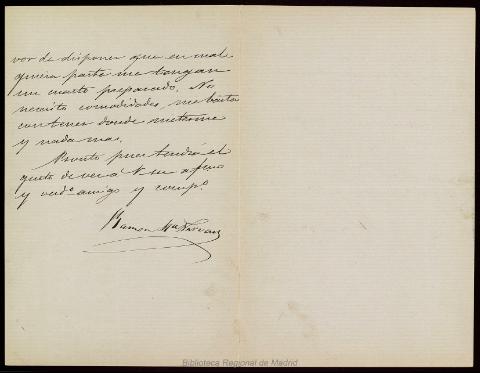 vor de disponer que en cual
quiera parte me tengan
un cuarto preparado. No
necesito comodidades, me basta
con tener donde meterme
y nada mas.
Pronto pues tendrá el
gusto de ver á V. su afmo
y verdo amigo y comp.o
Ramon
Biblioteca Regional de Madrid